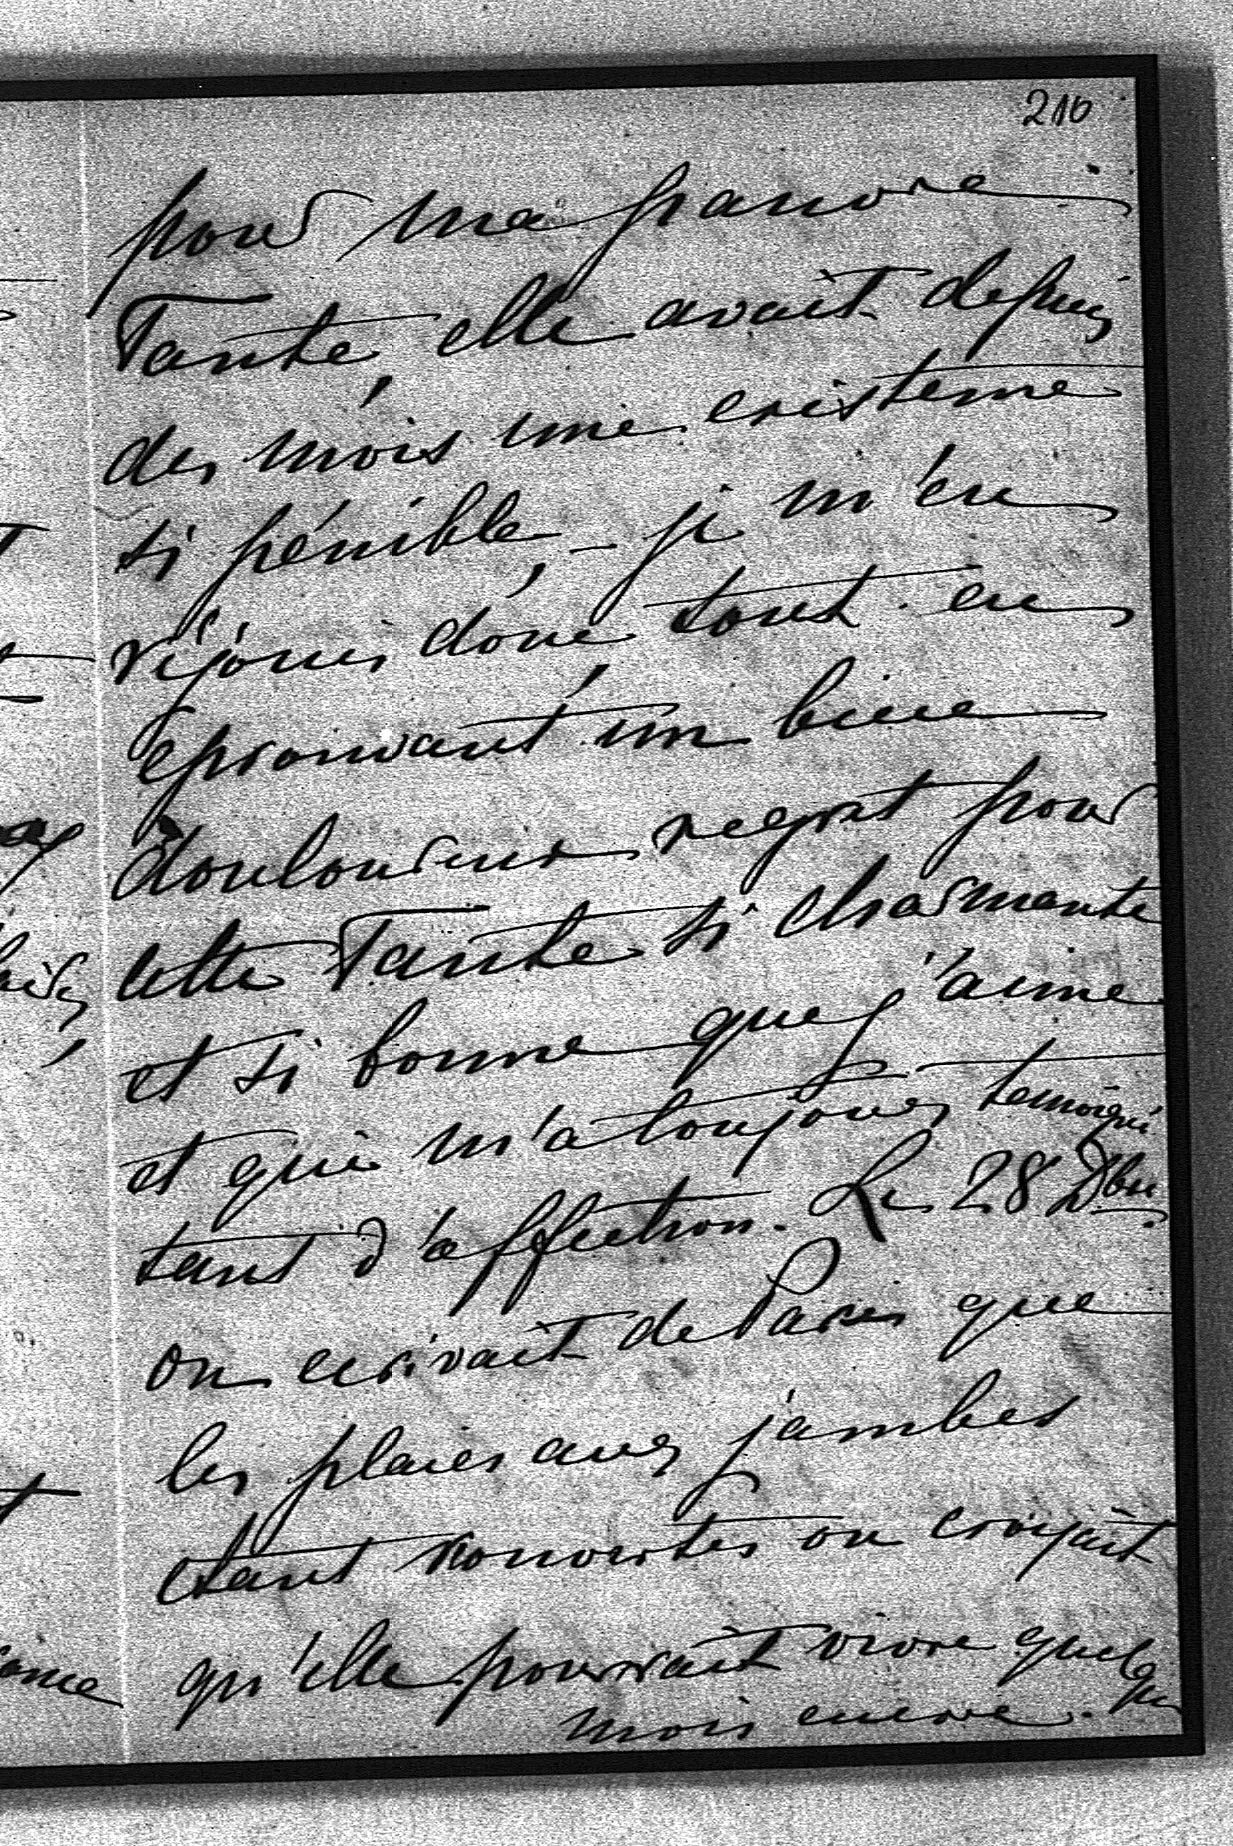 210
pour ma pauvre
Tante, elle avait depuis
des mois une existence
si pénible, – je m'en
réjouis donc tout en
éprouvant un bien
douloureux regret pour
cette Tante si charmante
et si bonne que j'aime
et qui m'a toujours temoigné
tant d'affection. Le 28 Dbre
on ecrivait de Paris que
les plaies aux jambes
etant rouvertes on croyait
qu'elle pourrait vivre quelques
mois encore.